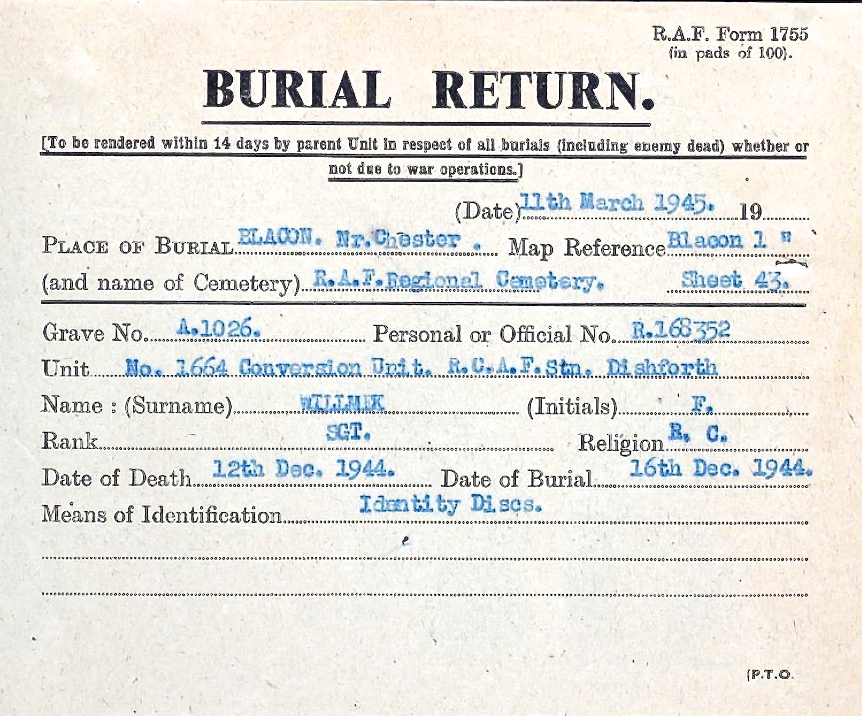 R.A.F. Form 1755
(in pads of 100).
BURIAL RETURN.
[To be rendered within 14 days by parent Unit in respect of all burials (including enemy dead) whether or
not due to war operations.]
(Date) 11th March 1945. 19
PLACE OF BURIAL BLACON. Nr.Chester . Map Reference Blacon 1 "
(and name of Cemetery) R.A.F.Regional Cemetery. Sheet 43.
Grave No. A.1026. Personal or Official No. R.168352
Unit No. 1664 Conversion Unit. R.C.A.F.Stn. Dishforth
Name : (Surname) WILLMEK (Initials) F.
Rank SGT. Religion R. C.
Date of Death 12th Dec. 1944. Date of Burial 16th Dec. 1944.
Means of Identification Identity Discs.
(P.T.O.